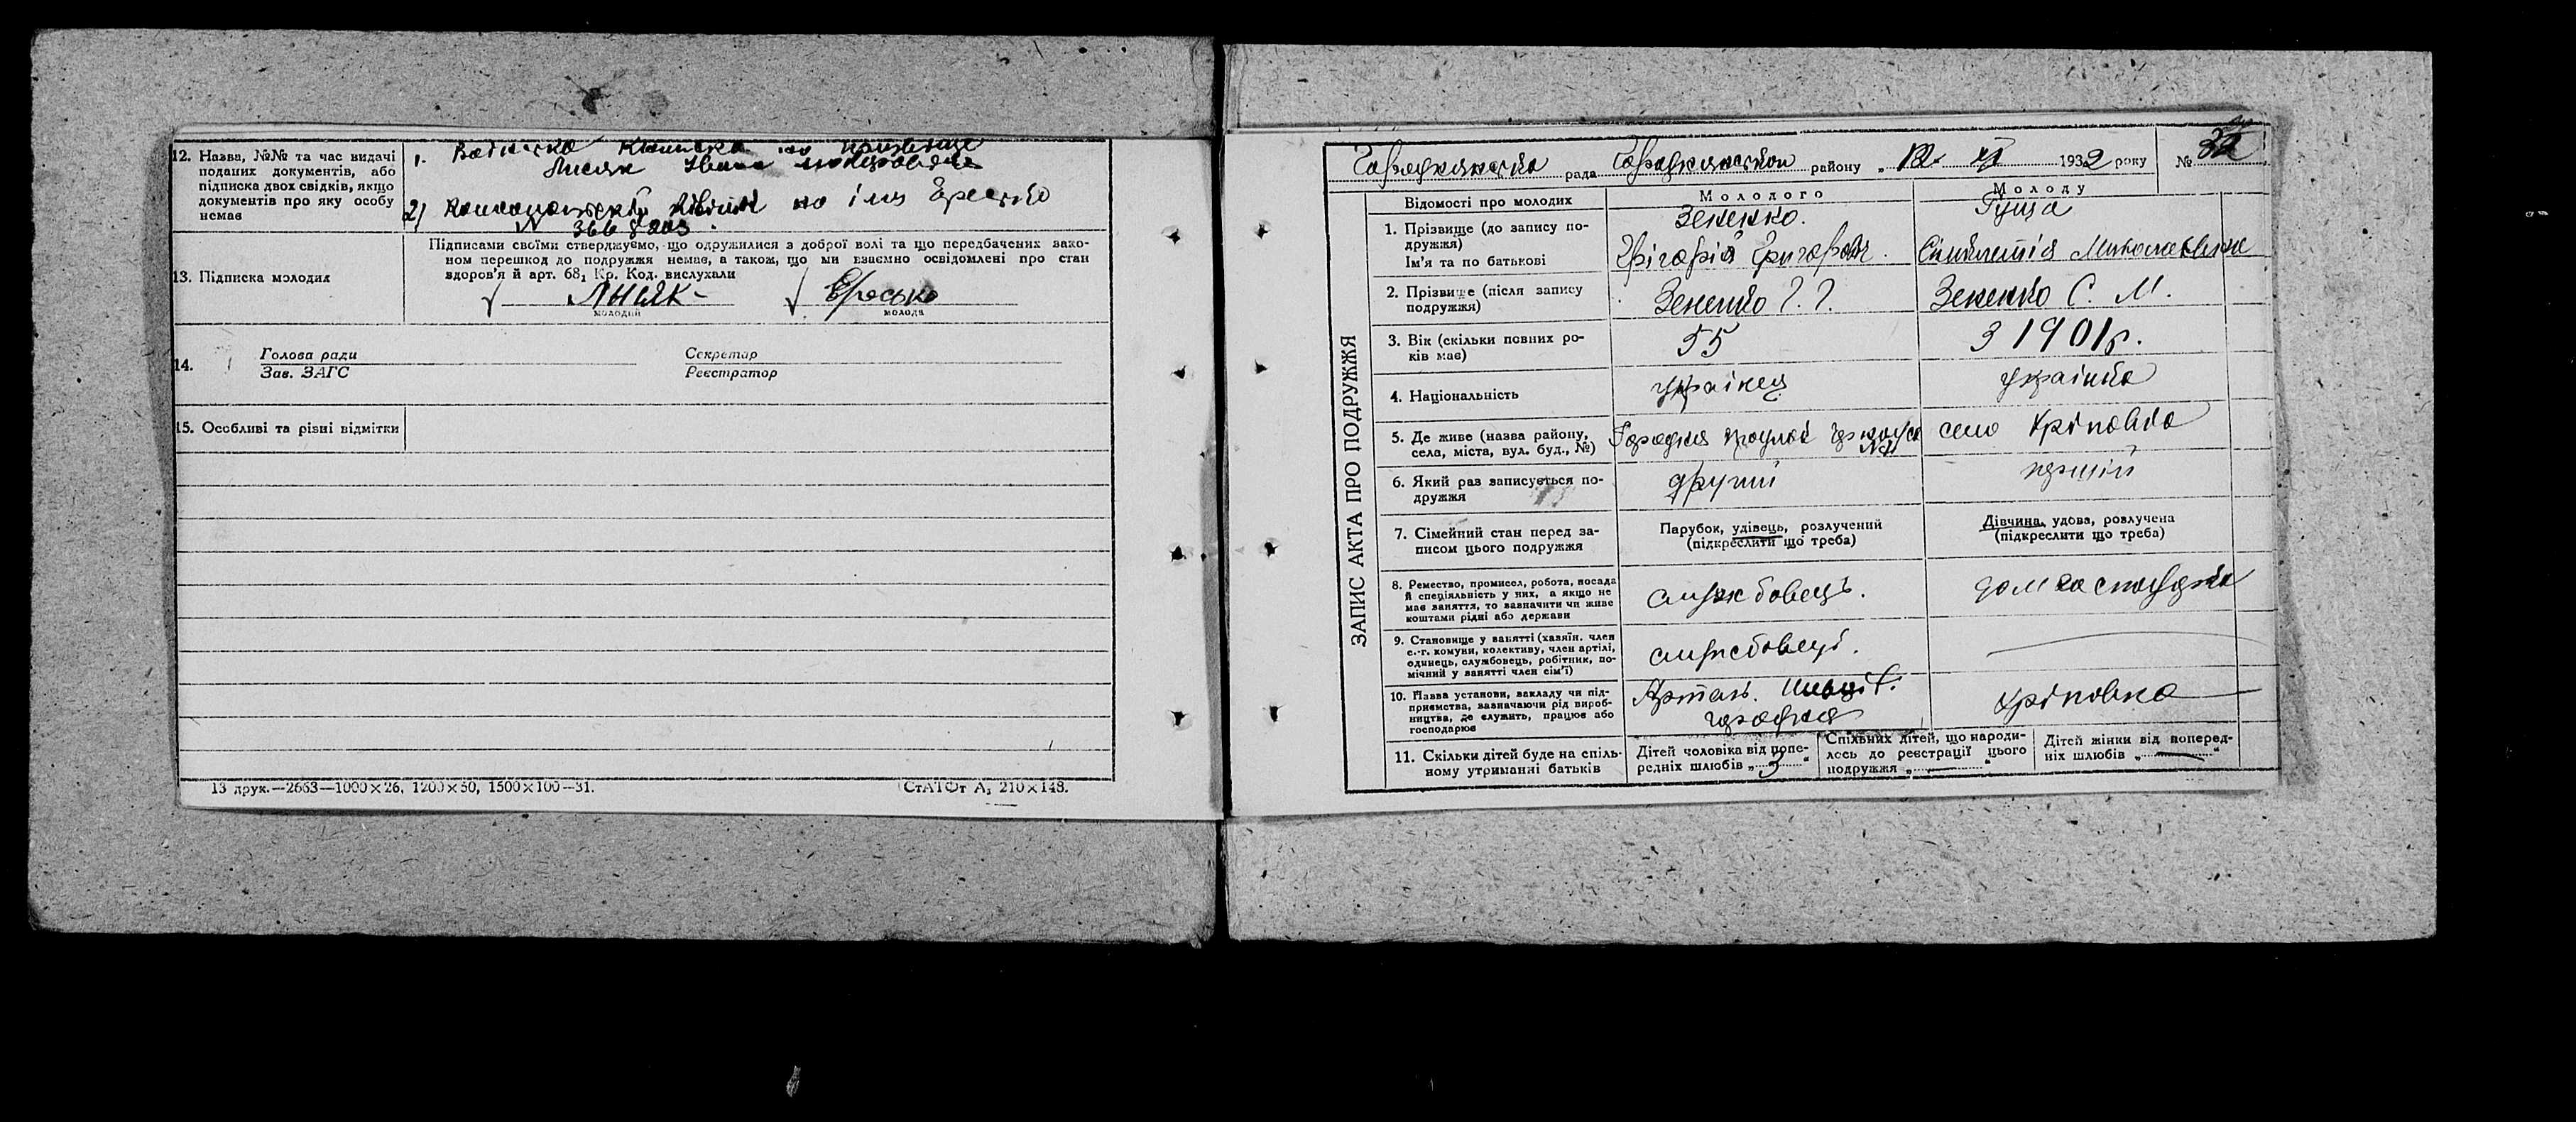 12. Назва, №№ та час видачі
поданих документів, або
підписка двох свідків, якщо
документів про яку особу
немає
1. на прізвище
Лисяк Івана
2) на ім'я Ересько
N 3668203.
13. Підписка молодих
Підписами своїми стверджуємо, що одружилися з доброї волі та що передбачених зако-
ном перешкод до подружжя немає, а також, що ми взаємно освідомлені про стан
здоров'я й арт. 68, Кр. Код. вислухали
√ Лысяк √ Ересько
молодий молода
14. Голова ради Секретар
Зав. ЗАГС Реєстратор
15. Особливі та різні відмітки
13 друк.—2663—1000×26, 1200×50, 1500×100—31.
СтАТФт А₅ 210×148.
ЗАПИС АКТА ПРО ПОДРУЖЖЯ
Городнянська рада Городнянськой району „12" VI 1932 року № 32
Відомості про молодих
Молодого
Молоду
1. Прізвище (до запису по-
дружжя)
Ім'я та по батькові
Зененко.
Грігорій Григоров.
Гуща
Миколаевна
2. Прізвище (після запису
подружжя)
Зененко Г. Г.
Зененко С. М.
3. Вік (скільки повних ро-
ків має)
55
З 1901р.
4. Національність
українец
українка
5. Де живе (назва району,
села, міста, вул. буд., №)
Городня
село Хріповка
6. Який раз записується по-
дружжя
другий
перший
7. Сімейний стан перед за-
писом цього подружжя
Парубок, удівець, розлучений
(підкреслити що треба)
Дівчина, удова, розлучена
(підкреслити що треба)
8. Ремество, промисел, робота, посада
й спеціяльність у них, а якщо не
має заняття, то зазначити чи живе
коштами рідні або держави
службовець.
домгосподарка
9. Становище у занятті (хазяїн, член
с.-г. комуни, колективу, член артілі,
одинець, службовець, робітник, по-
мічний у занятті член сім'ї)
службовець.
10. Назва установи, закладу чи під-
приємства, зазначаючи рід вироб-
ництва, де служить, працює або
господарює
Артель.
Городня
Хріповка
11. Скільки дітей буде на спіль-
ному утриманні батьків
Дітей чоловіка від попе-
редніх шлюбів „3"
Спільних дітей, що народи-
лось до реєстрації цього
подружжя „—"
Дітей жінки від поперед-
ніх шлюбів „—"